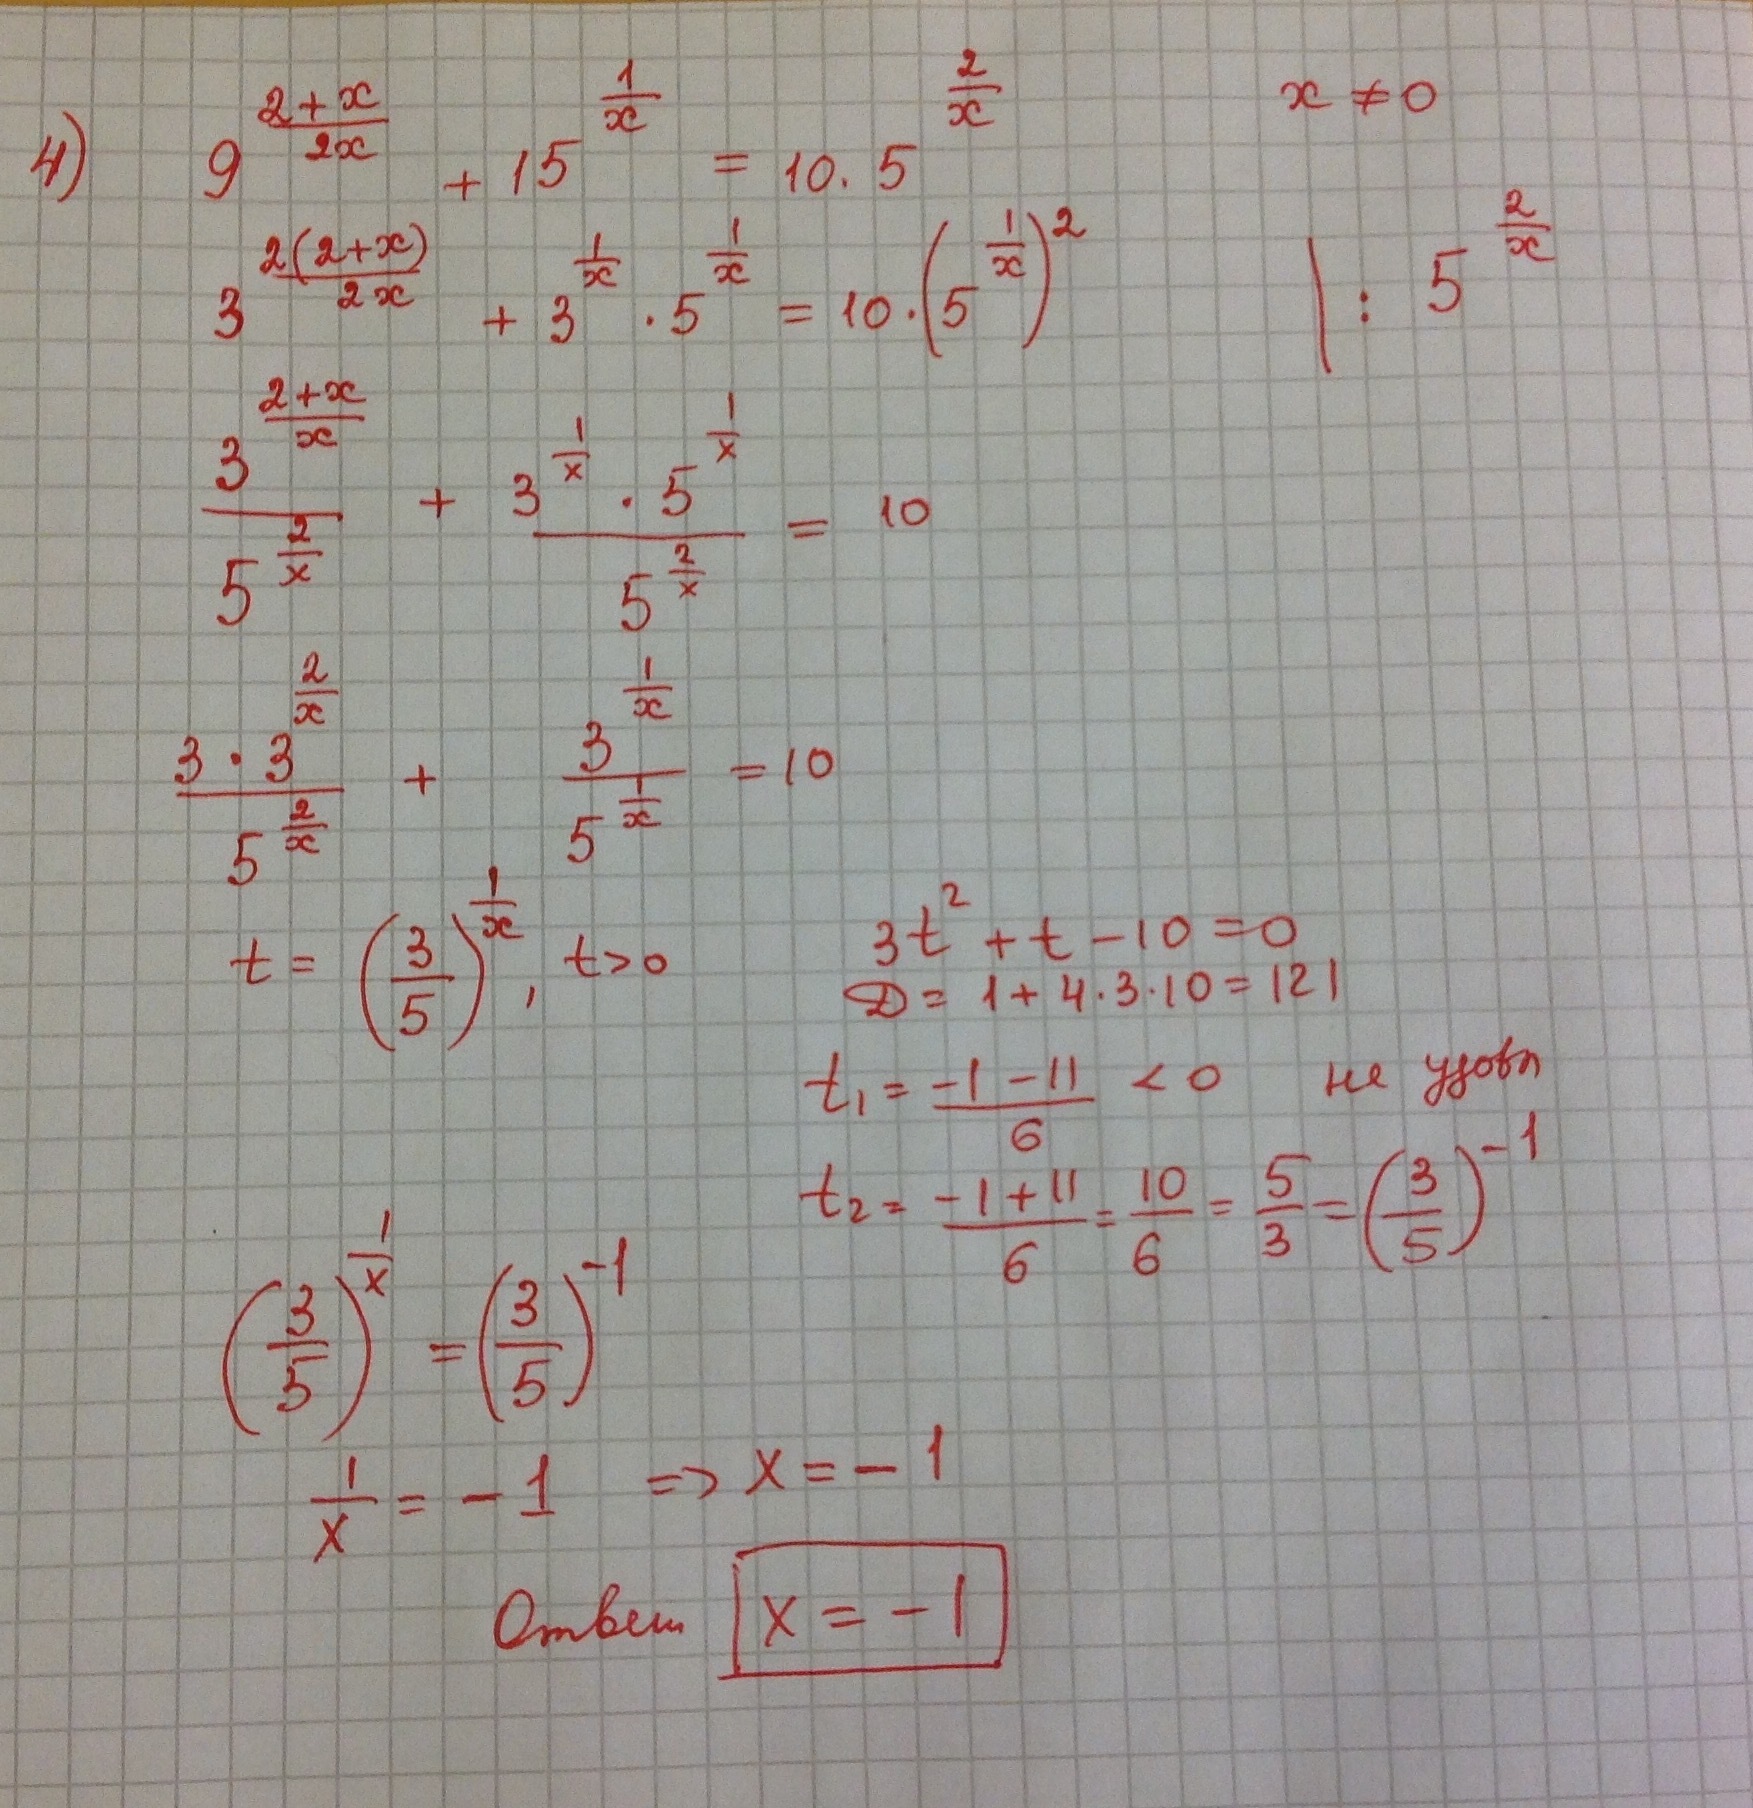 4) 9^((2+x)/(2x)) + 15^(1/x) = 10 · 5^(2/x)    x ≠ 0
3^(2(2+x)/(2x)) + 3^(1/x) · 5^(1/x) = 10 · (5^(1/x))^2  | : 5^(2/x)
3^((2+x)/x) / 5^(2/x) + (3^(1/x) · 5^(1/x)) / 5^(2/x) = 10
(3 · 3^(2/x)) / 5^(2/x) + 3^(1/x) / 5^(1/x) = 10
t = (3/5)^(1/x), t > 0
3t^2 + t − 10 = 0
D = 1 + 4·3·10 = 121
t₁ = (−1 − 11)/6 < 0 не удовл
t₂ = (−1 + 11)/6 = 10/6 = 5/3 = (3/5)^(−1)
(3/5)^(1/x) = (3/5)^(−1)
1/x = −1 => x = −1
Ответ x = −1